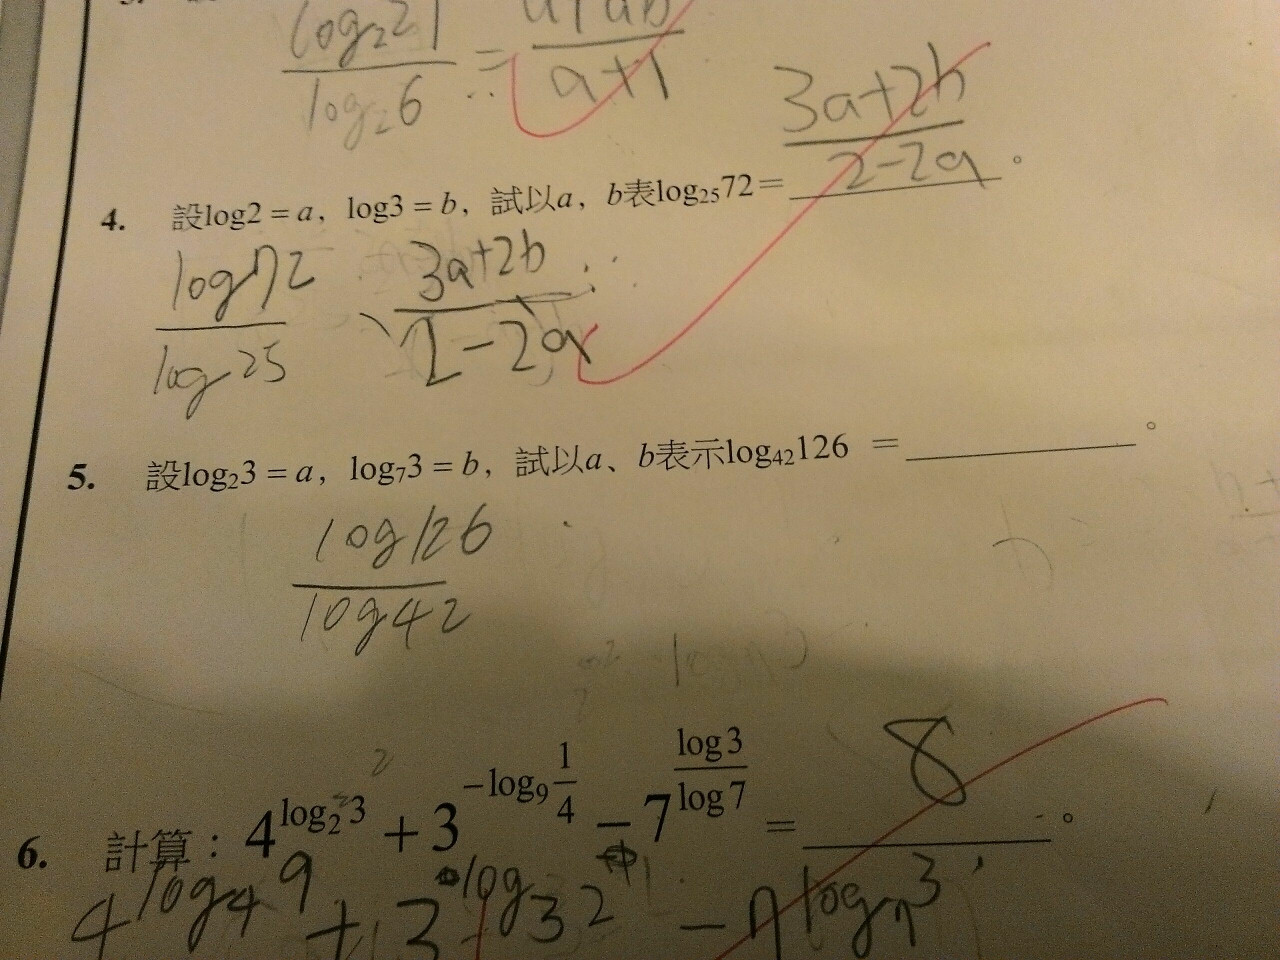 log₂21 / log₂6 = a+ab / a+1
3a+2b / 2-2a
4. 設log2 = a, log3 = b, 試以a, b表log₂₅72 = ________。
log72 / log25 、 3a+2b / 2-2a
5. 設log₂3 = a, log₇3 = b, 試以a、b表示log₄₂126 = ________。
log126 / log42
8
6. 計算：4^(log₂3) + 3^(-log₉ 1/4) - 7^(log3 / log7) = ________。
4^(log₄9) + 3^(log₃2) - 7^(log₇3)